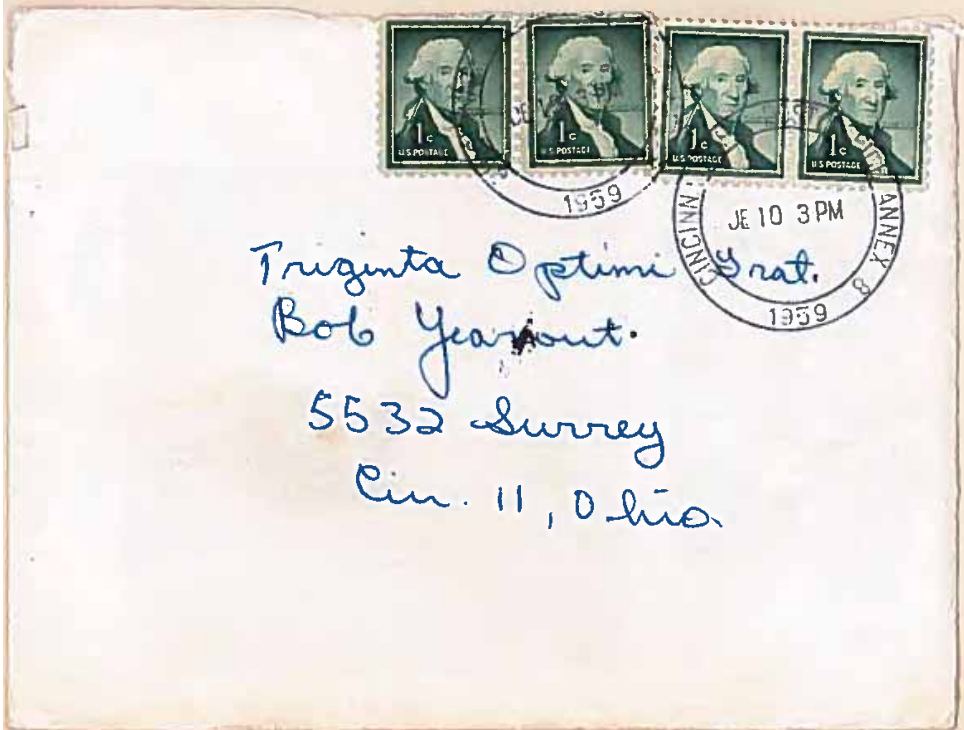 1c 1c 1c 1c
U.S. POSTAGE U.S. POSTAGE U.S. POSTAGE U.S. POSTAGE
1959
CINCINN ANNEX 8
JE 10 3 PM
1959
Triginta Optimi Frat.
Bob Yearout.
5532 Surrey
Cin. 11, Ohio